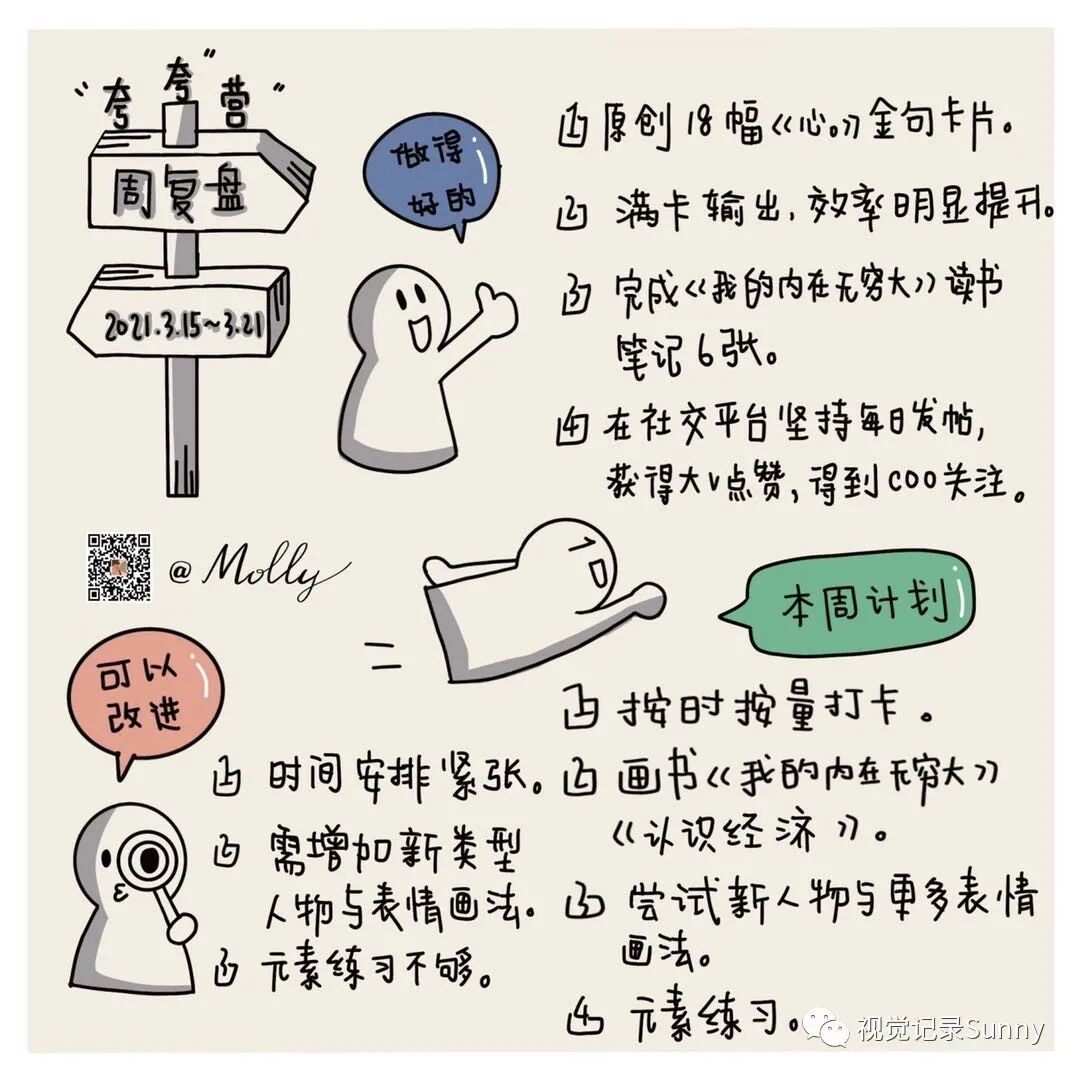 “夸夸”营”
周复盘
2021.3.15~3.21
做得
好的
1 原创18幅《心。》金句卡片。
2 满卡输出,效率明显提升。
3 完成《我的内在无穷大》读书
笔记6张。
4 在社交平台坚持每日发帖,
获得大V点赞,得到COO关注。
@Molly
可以
改进
1 时间安排紧张。
2 需增加新类型
人物与表情画法。
3 元素练习不够。
本周计划
1 按时按量打卡。
2 画书《我的内在无穷大》
《认识经济》。
3 尝试新人物与更多表情
画法。
4 元素练习。
视觉记录Sunny